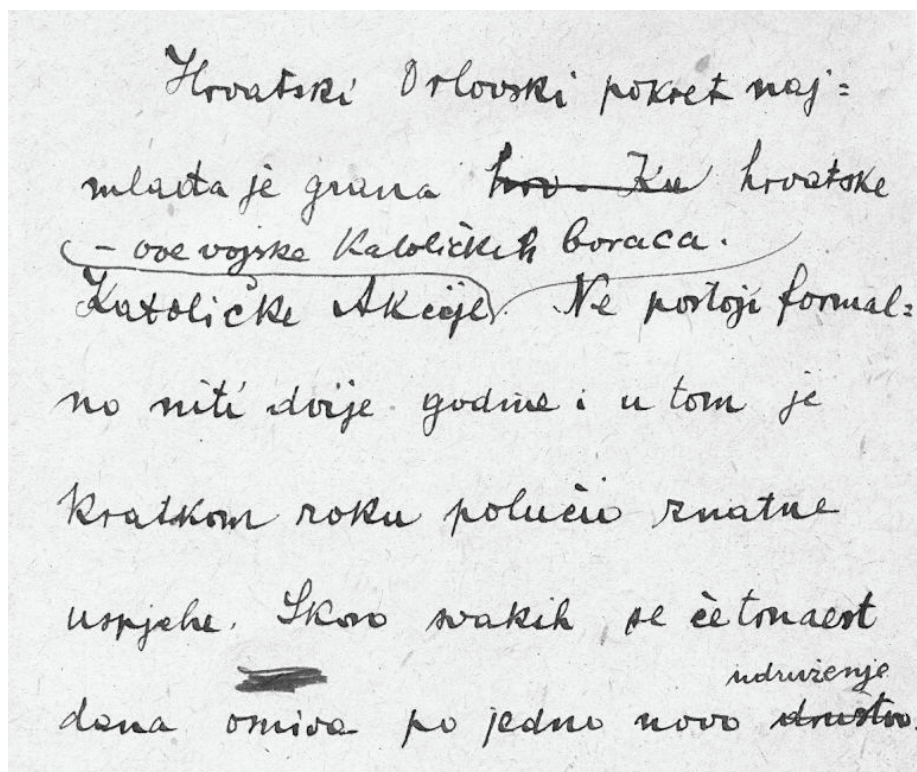 Hrvatski Orlovski pokret naj=
mlađa je grana hrv. Ka hrvatske
- ove vojske Katoličkih boraca.
Katoličke Akcije. Ne postoji formal=
no niti dvije godine i u tom je
kratkom roku polučio znatne
uspjehe. Skoro svakih se četrnaest
udruženje
dana osniva po jedno novo društvo.